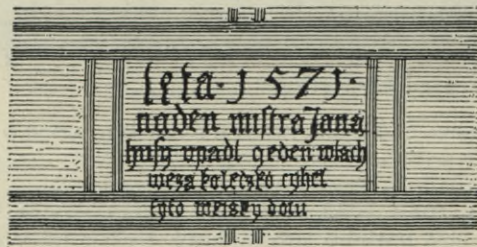 leta · 1571 ·
naden mistra Jana
husy vpadl geden wlach
weza koleczko cyhel
tyto weisky dolu